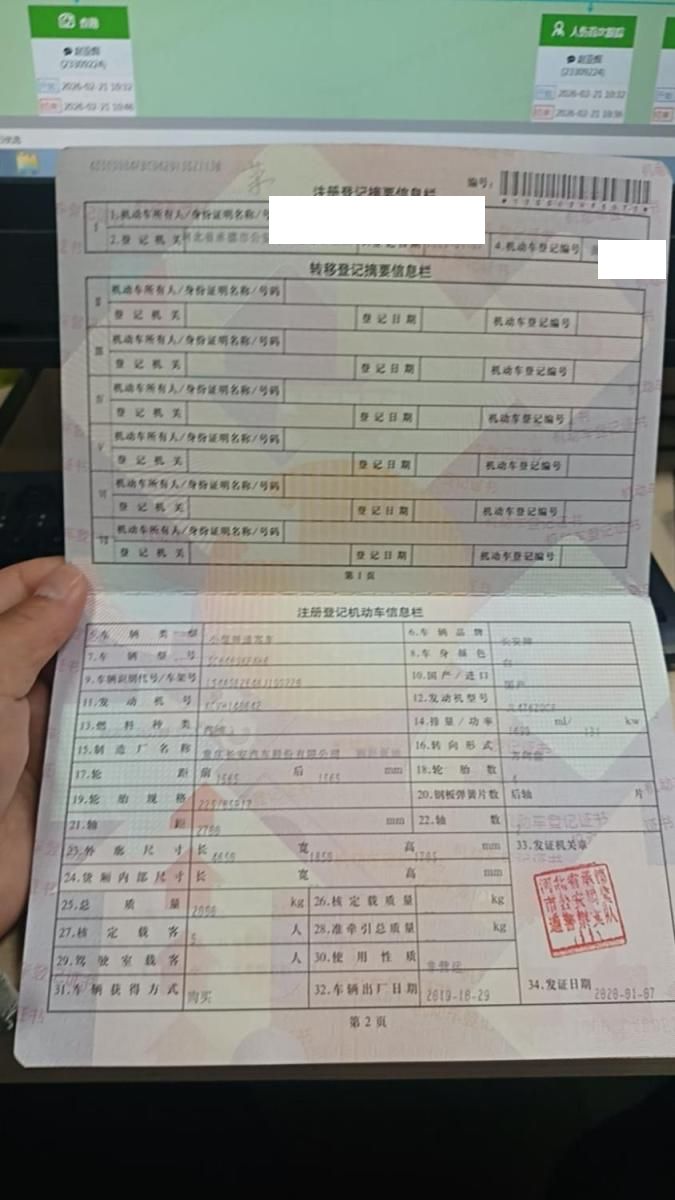 查勘
(23309224)
2026-02-21 10:12
2026-02-21 10:46
人伤首次跟踪
(23309224)
2026-02-21 10:12
2026-02-21 10:36
注册登记摘要信息栏
编号:
I
1.机动车所有人/身份证明名称/号
2.登记机关 河北省承德市公安
4.机动车登记编号
转移登记摘要信息栏
II 机动车所有人/身份证明名称/号码
登记机关 登记日期 机动车登记编号
III 机动车所有人/身份证明名称/号码
登记机关 登记日期 机动车登记编号
IV 机动车所有人/身份证明名称/号码
登记机关 登记日期 机动车登记编号
V 机动车所有人/身份证明名称/号码
登记机关 登记日期 机动车登记编号
VI 机动车所有人/身份证明名称/号码
登记机关 登记日期 机动车登记编号
VII 机动车所有人/身份证明名称/号码
登记机关 登记日期 机动车登记编号
第1页
注册登记机动车信息栏
5.车辆类型 小型普通客车 6.车辆品牌 长安牌
7.车辆型号 8.车身颜色 白
9.车辆识别代号/车架号 10.国产/进口 国产
11.发动机号 12.发动机型号
13.燃料种类 汽油 14.排量/功率 ml/ 131 kw
15.制造厂名称 重庆长安汽车股份有限公司 16.转向形式 方向盘
17.轮距 前 1565 后 1565 mm 18.轮胎数 4
19.轮胎规格 20.钢板弹簧片数 后轴 片
21.轴距 2700 mm 22.轴数 2
23.外廓尺寸 长 4650 宽 1850 高 1705 mm 33.发证机关章
24.货厢内部尺寸 长 宽 高 mm
25.总质量 kg 26.核定载质量 kg
27.核定载客 5 人 28.准牵引总质量 kg
29.驾驶室载客 人 30.使用性质 非营运
31.车辆获得方式 购买 32.车辆出厂日期 2019-10-29 34.发证日期 2020-01-07
第2页